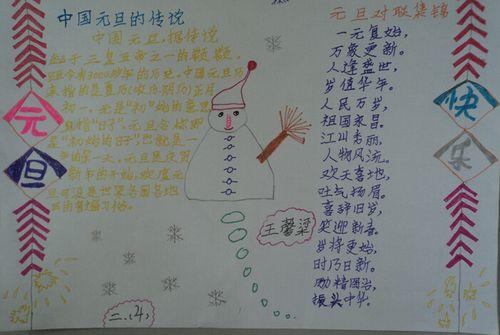 中国元旦的传说
中国元旦,据传说
起于三皇五帝之一的颛顼,
距今有3000多年的历史。中国元旦历
来指的是夏历(农历、阴历)正月
初一。元是"初"的意思
旦指"日子"。元旦合称即
是"初始的日子",也就是一
年的第一天。元旦是庆贺
新年的开始,欢度元
旦可说是世界各国各地
元
旦
元旦对联集锦
一元复始,
万象更新。
人逢盛世,
岁值华年。
人民万岁,
祖国永昌。
江山秀丽,
人物风流。
欢天喜地,
吐气扬眉。
喜辞旧岁,
笑迎新春。
岁将更始,
时乃日新。
励精图治,
振兴中华。
快
乐
王馨梁
二、(4)